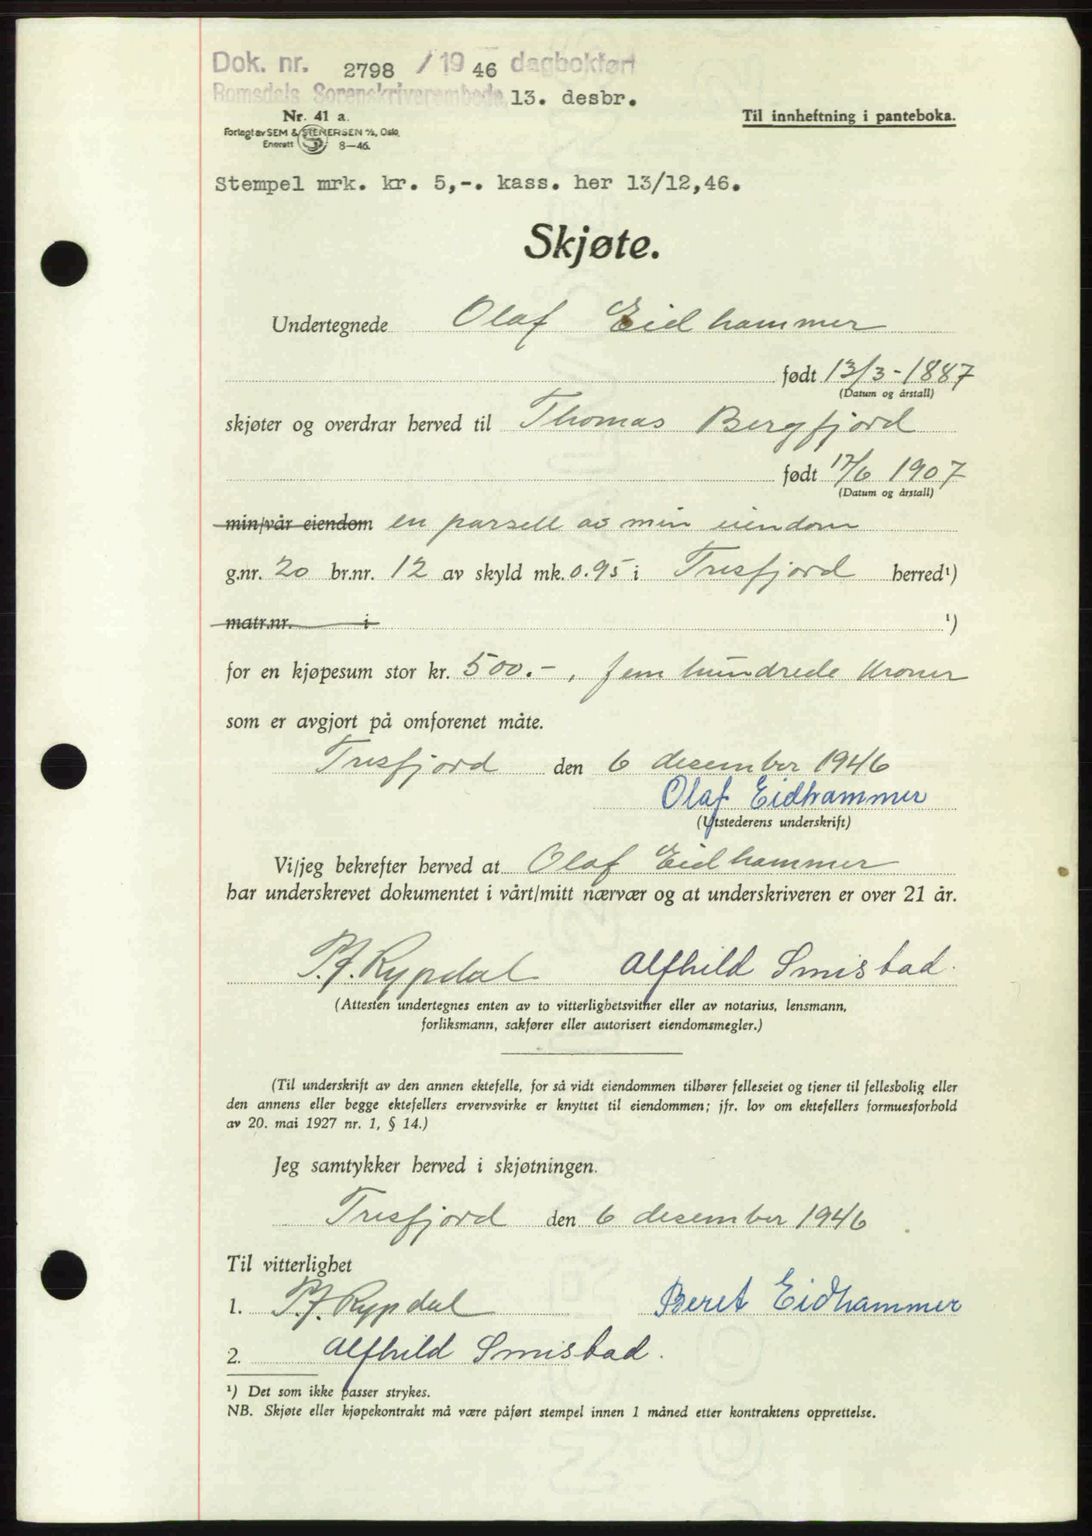 Dok. nr. 2798 / 19 46 dagbokført
Romsdals Sorenskriverembede 13. desbr.
Nr. 41 a.
Til innheftning i panteboka.
Forlagt av SEM & STENERSEN A/S, Oslo.
Enerett 8—46.
Stempel mrk. kr. 5,-. kass. her 13/12,46.
Skjøte.
Undertegnede Olaf Eidhammer
født 13/3-1887
(Datum og årstall)
skjøter og overdrar herved til Thomas Bergfjord
født 17/6 1907
(Datum og årstall)
min/vår eiendom en parsell av min eiendom
g.nr. 20 br.nr. 12 av skyld mk. 0.95 i Tresfjord herred¹)
matr.nr. i ¹)
for en kjøpesum stor kr. 500.-, fem hundrede kroner
som er avgjort på omforenet måte.
Tresfjord den 6 desember 1946
Olaf Eidhammer
(Utstederens underskrift)
Vi/jeg bekrefter herved at Olaf Eidhammer
har underskrevet dokumentet i vårt/mitt nærvær og at underskriveren er over 21 år.
P.J. Rypdal Alfhild Smisbad.
(Attesten undertegnes enten av to vitterlighetsvitner eller av notarius, lensmann,
forliksmann, sakfører eller autorisert eiendomsmegler.)
(Til underskrift av den annen ektefelle, for så vidt eiendommen tilhører felleseiet og tjener til fellesbolig eller
den annens eller begge ektefellers ervervsvirke er knyttet til eiendommen; jfr. lov om ektefellers formuesforhold
av 20. mai 1927 nr. 1, § 14.)
Jeg samtykker herved i skjøtningen.
Tresfjord den 6 desember 1946
Til vitterlighet
1. P.J. Rypdal Beret Eidhammer
2. Alfhild Smisbad.
¹) Det som ikke passer strykes.
NB. Skjøte eller kjøpekontrakt må være påført stempel innen 1 måned etter kontraktens opprettelse.